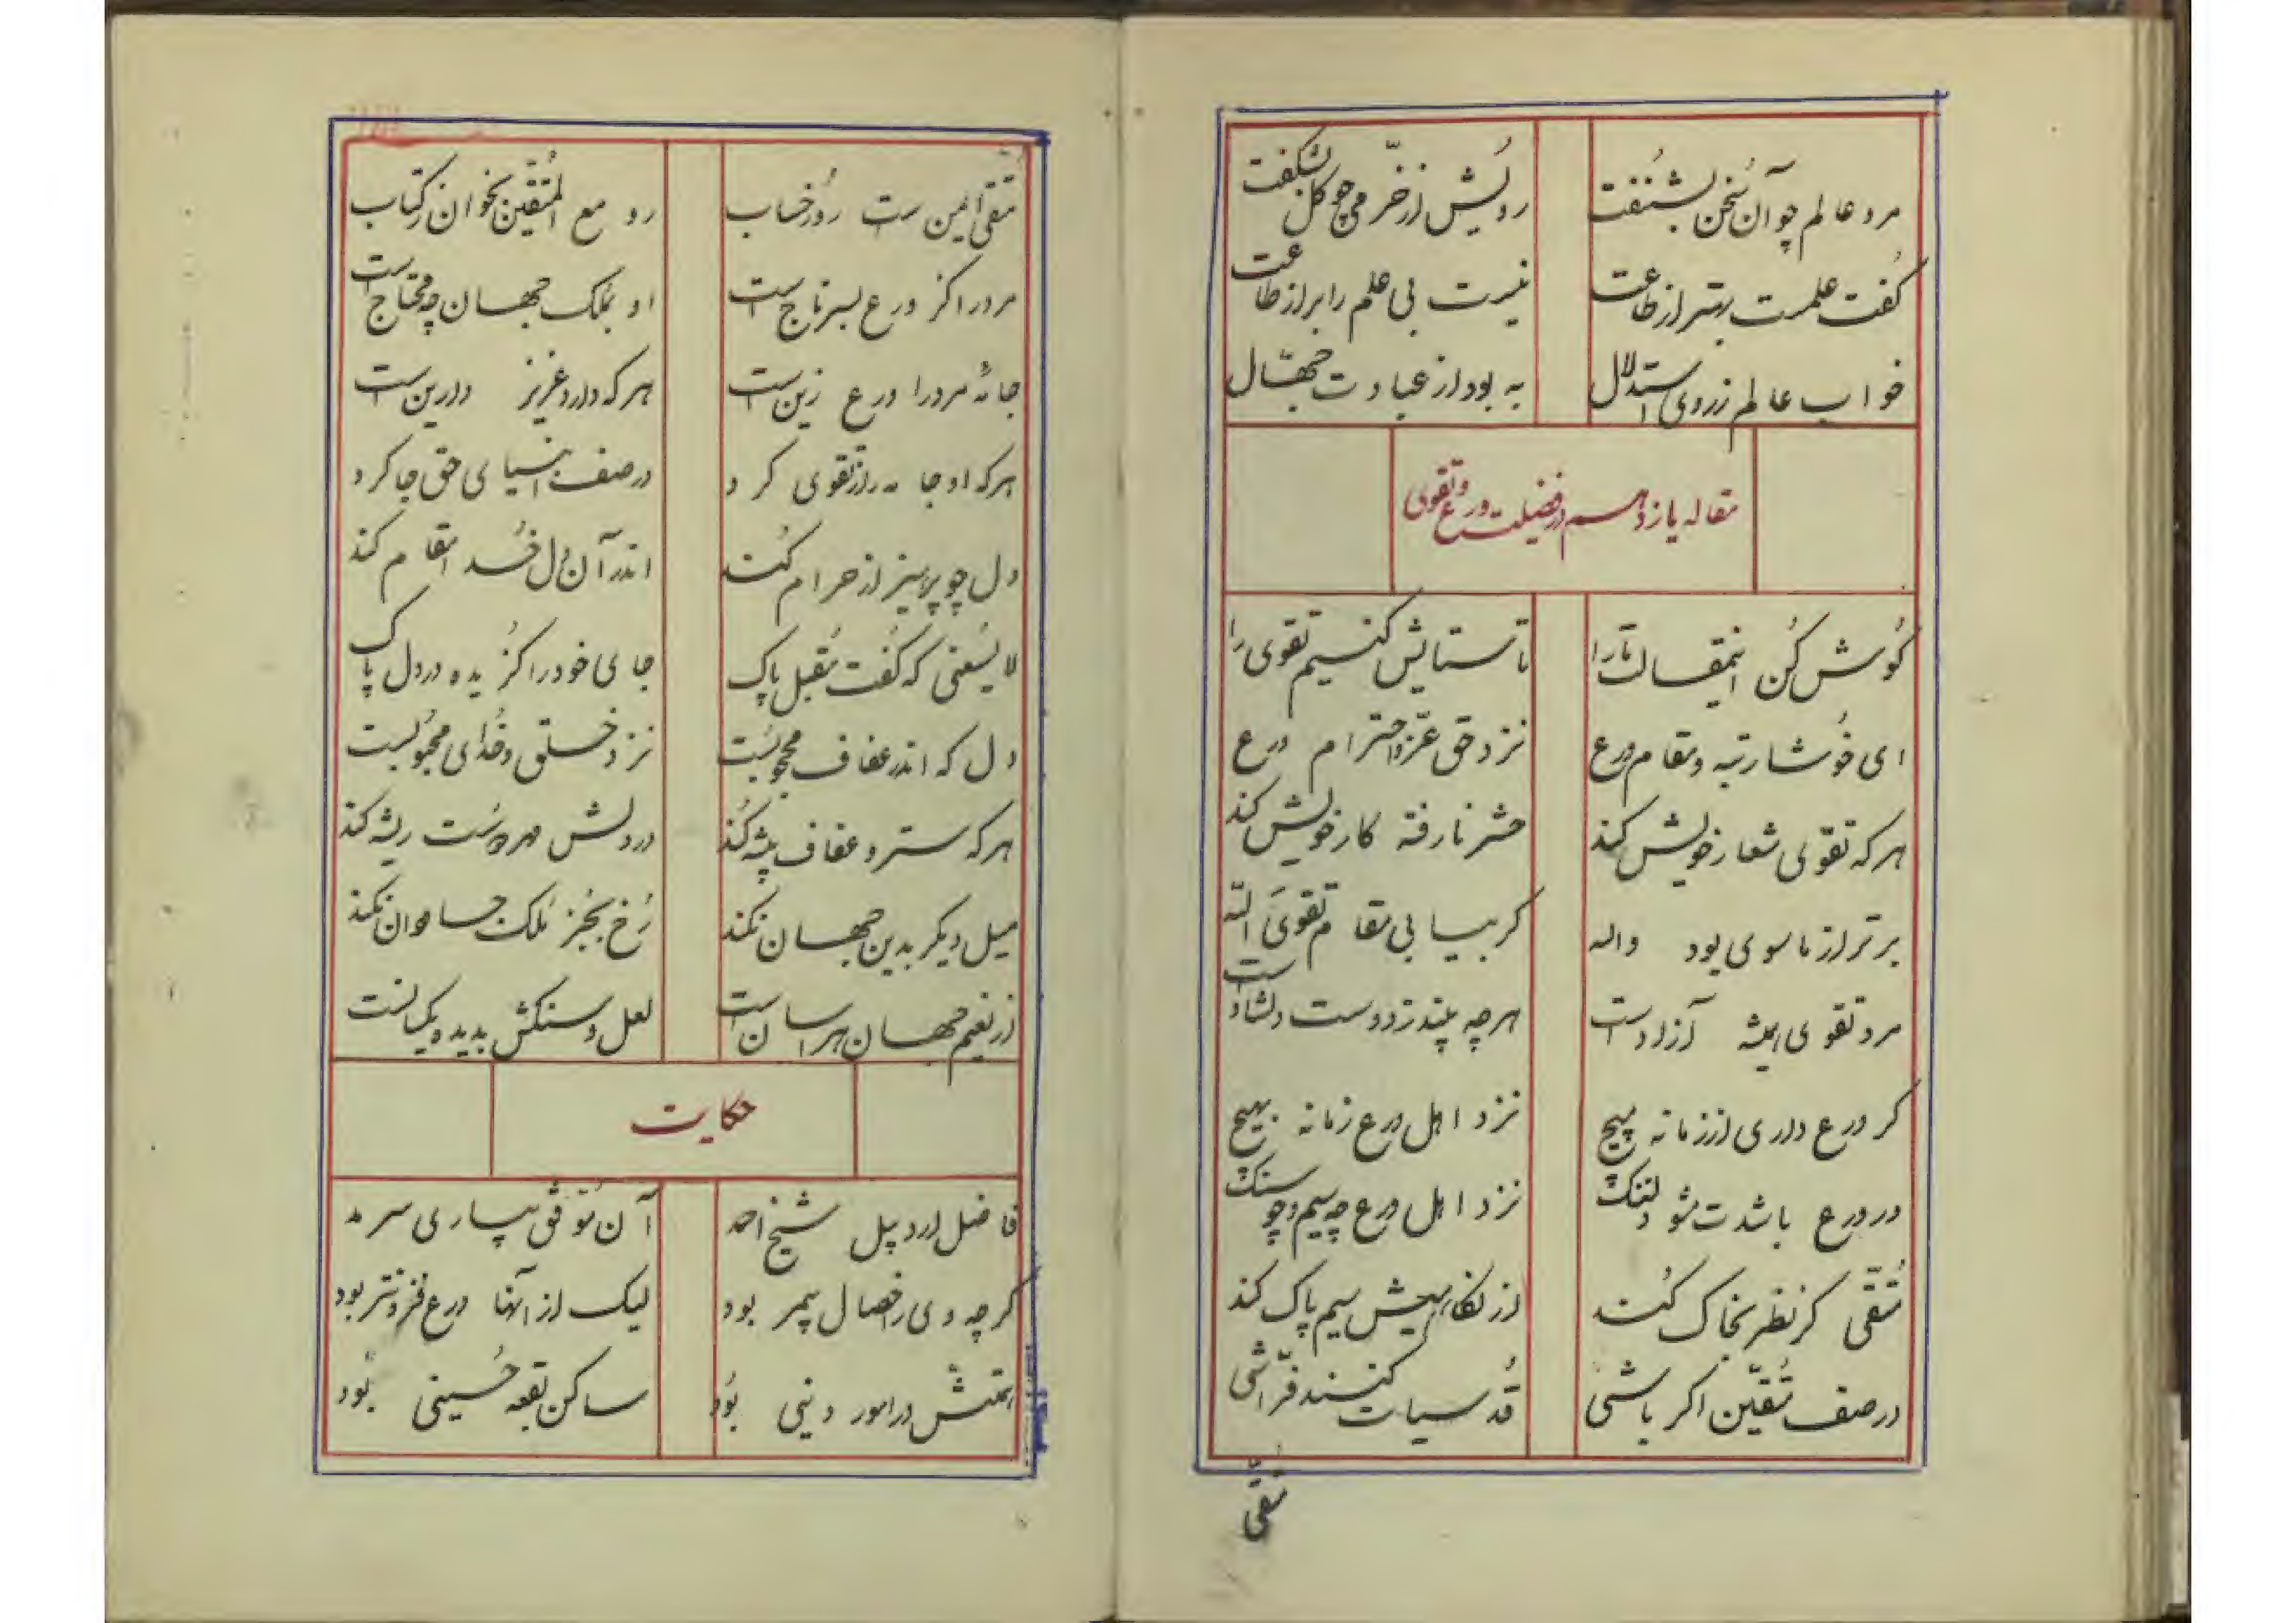 مرد عالم چو آن سخن بشنفت رویش از خرّمی چو گل بشکفت
گفت علمت بهتر از طاعت نیست بی علم را بر از طاعت
خواب عالم ز روی استدلال به بود از عبادت جهّال
مقاله یازدهم در فضیلت ورع و تقوی
گوش کن اینمقالت ما را تا ستایش کنیم تقوی را
ای خوشا رتبه و مقام ورع نزد حق عزّ و احترام ورع
هرکه تقوی شعار خویش کند حشر نارفته کار خویش کند
برتر از ماسوی بود واله گر بیابی مقام تقوی الله
مرد تقوی همیشه آزاد است هرچه بیند ز دوست دلشاد است
گر ورع داری از زمانه مپیچ نزد اهل ورع زمانه بهیچ
در ورع باشدت مشو دلتنگ نزد اهل ورع چه سیم و چو سنگ
متّقی گر نظر بخاک کند از نگاهیش سیم پاک کند
در صف متّقین اگر باشی قدسیانت کنند فرّاشی
متقی
متقی ایمن است روز حساب رو مع المتقین بخوان ز کتاب
مرد را گر ورع بسر تاج است او بملک جهان چه محتاج است
جامهٔ مرد را ورع زین است هرکه دارد عزیز دارین است
هرکه او جامه را ز تقوی کرد در صف انبیای حق جا کرد
دل چو پرهیز از حرام کند اندر آن دل خدا مقام کند
لا یسعنی که گفت مقبل پاک جای خود را گزیده در دل پاک
دل که اندر عفاف محجوبست نزد خلق و خدای محبوبست
هرکه ستر و عفاف پیشه کند در دلش مهر دوست ریشه کند
میل دیگر بدین جهان نکند رخ بجز ملک جاودان نکند
از نعیم جهان هراسان است لعل و سنگش بدیده یکسانست
حکایت
فاضل اردبیل شیخ احمد آن موفق بیاری سرمد
گرچه وی را خصال بیمر بود لیک از آنها ورع فزونتر بود
همتش در امور دینی بود ساکن بقعه حسینی بود